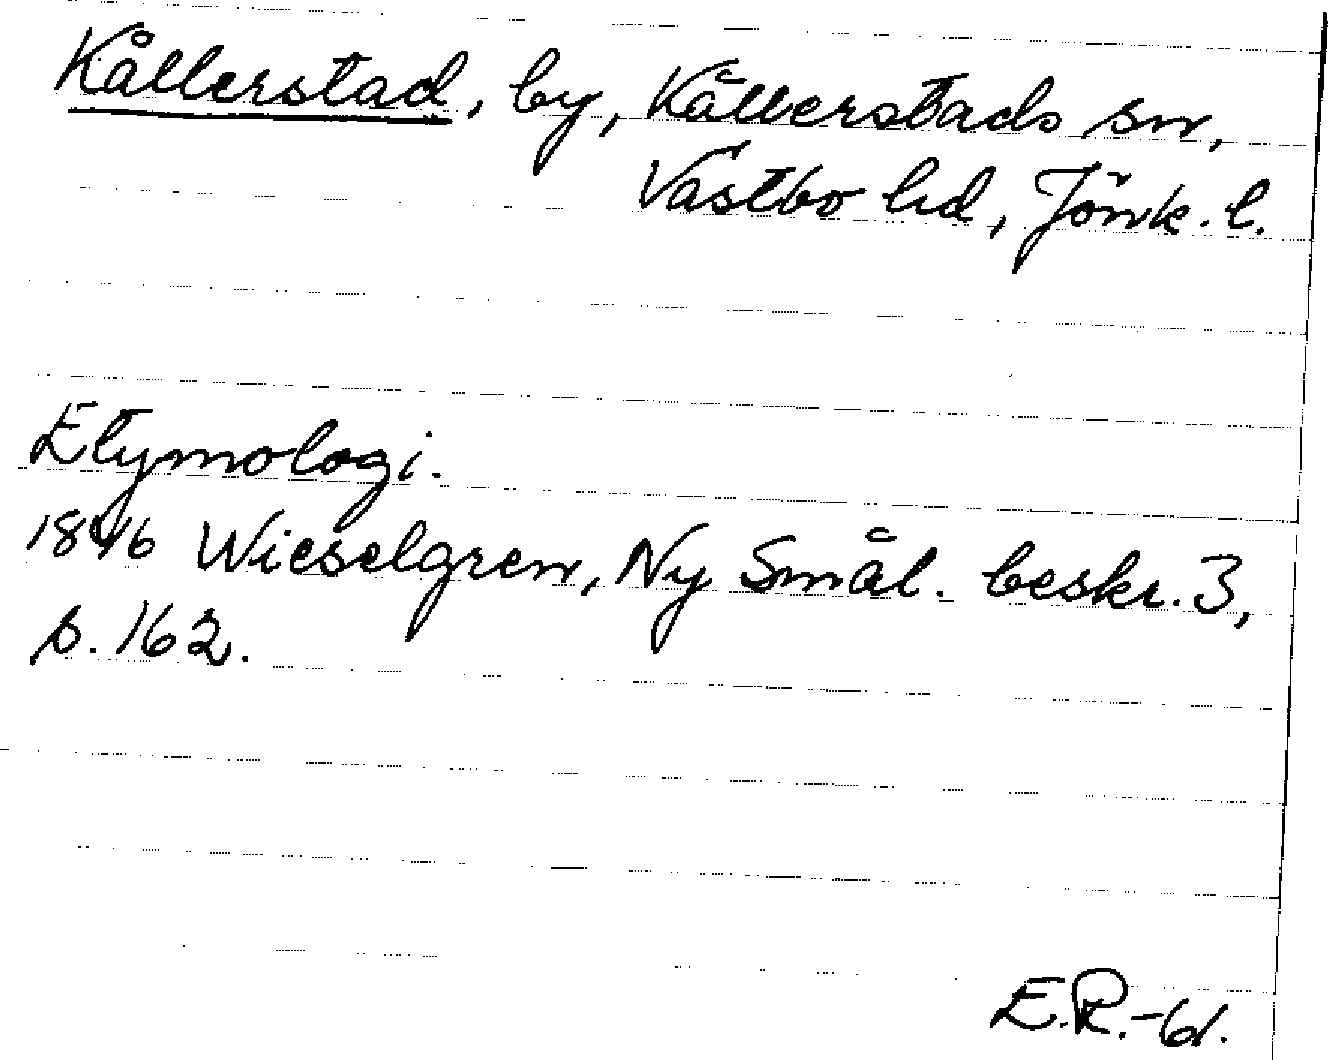 Kållerstad, by, Kållerstads sn,
Västbo hd, Jönk. l.
Etymologi.
1846 Wieselgren, Ny Smål. beskr. 3,
s. 162.
E.R.-61.